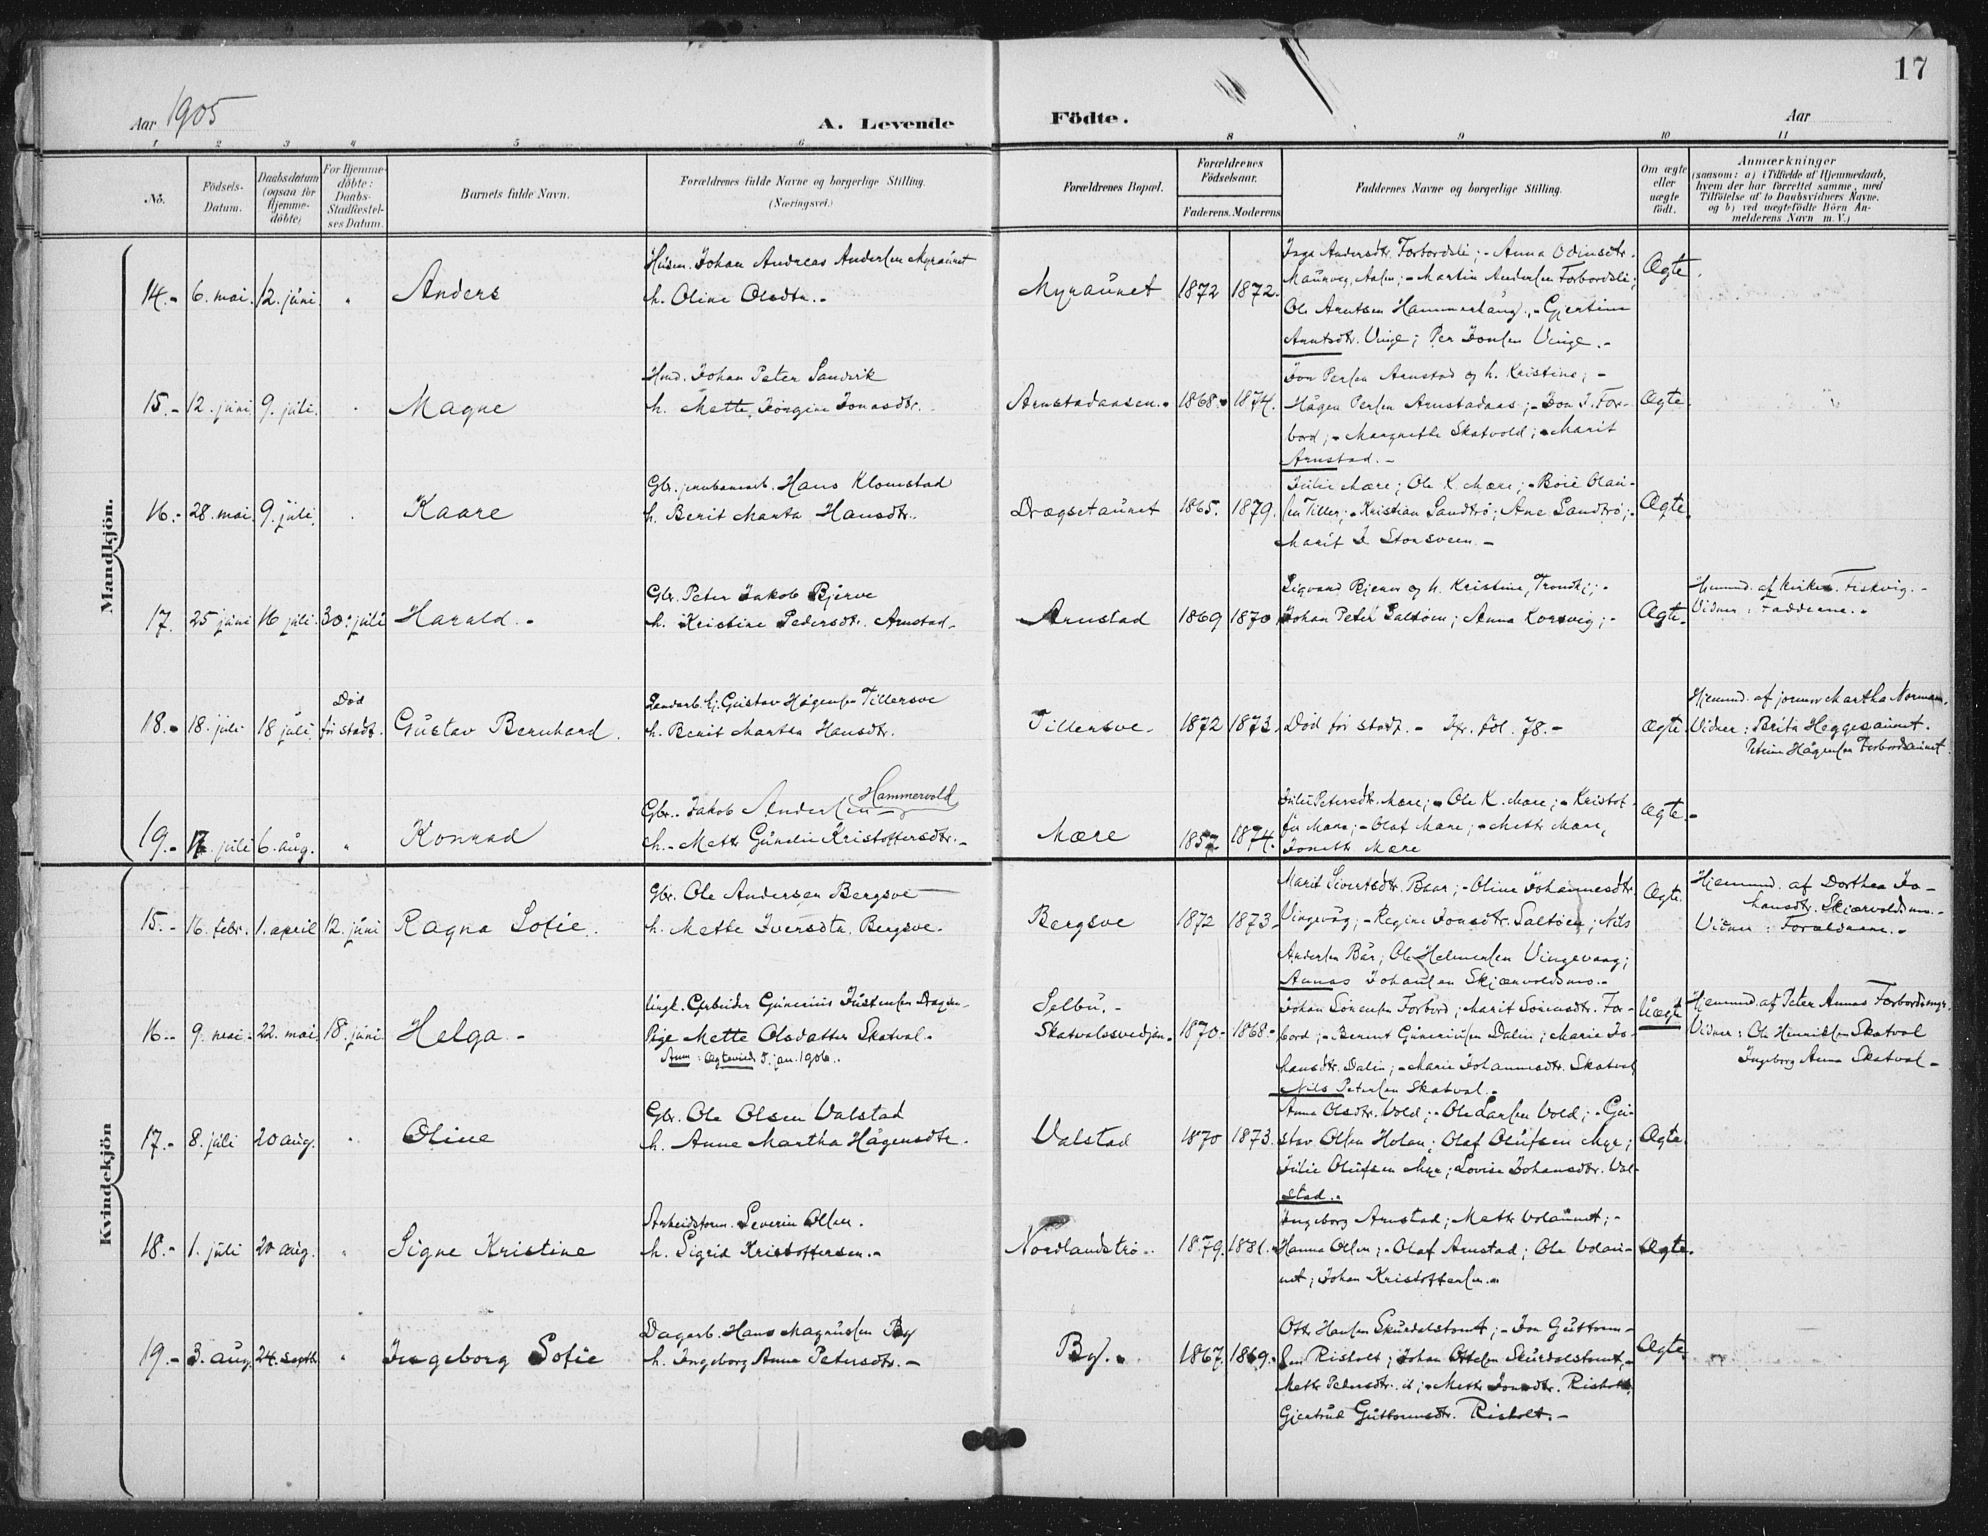 17
Aar 1905
A. Levende
Födte.
Aar
1 2 3 4 5 6 8 9 10 11
No.
Födsels-Datum.
Daabsdatum (ogsaa for Hjemme-döbte)
For Hjemme-döbte: Daabs-Stadfæstel-ses Datum.
Barnets fulde Navn.
Forældrenes fulde Navne og borgerlige Stilling. (Næringsvei.)
Forældrenes Bopæl.
Forældrenes Födselsaar.
Faderens. Moderens
Faddernes Navne og borgerlige Stilling.
Om ægte eller uægte födt.
Anmærkninger
(saasom: a) i Tilfælde af Hjemmedaab,
hvem der har forrettet samme, med
Tilföielse af to Daabsvidners Navne.
og b) ved uægtefödte Börn An-
melderens Navn m. V.)
Mandkjön.
14.- 6. mai. 12. juni " Anders
Husm. Johan Andreas Andersen Myraunet
h. Oline Olsdtr.-
Myraunet 1872 1872.
Inga Andersdtr. Forbordsli;- Anna Odinsdtr.
Aalen;- Martin Andersen Forbordsli;
Ole Arntsen Hammerhaug.,- Gjertine
Arntsdtr. Vinge; Per Jonsen Vinge.-
Ægte.
15.- 12. juni 9. juli. " Magne
Johan Peter Sandvik
h. Mette Jörgine Jonasdtr.
Arnstadaasen.- 1868.- 1874.
Jon Persen Arnstad og h. Kristine;-
Hågen Persen Arnstadaas;- Jon J. For-
bord;- Margrethe Skatvold;- Marit
Arnstad.-
Ægte.
16.- 28. mai 9. juli. " Kaare
Gbr. Hans Klomstad
h. Berit Marta Hansdtr.
Drøgsetaunet 1865. 1879.
Julie Mære; Ole K. Mære;- Boie Olau-
sen Tiller;- Kristian Sandtrø; Ane Sandtrø;-
Marit J. Storsveen.-
Ægte.
17. 25 juni 16 juli. 30. juli Harald.-
Gbr. Peter Jakob Bjerve
h. Kristine Pedersdtr. Arnstad-
Arnstad 1869 1870
Sigvard Bjerve og h. Kristine, Trondhj;-
Johan Peter Saltøien; Anna Korsvig;-
Ægte.
Hjemmd. af Fiskvig.-
Vidner: Fadderne.-
18.- 18. juli 18 juli. Død før stadf. Gustav Bernhard.
Gustav Hågensen Tillersve
h. Berit Martha Hansdtr.
Tillersve. 1872 1873.
Død før stadf.- Jfr. fol. 78.-
Ægte.
Hjemmd. af jormor Martha Normann.
Vidner: Brita Heggesaunet.
Hågensen Forbordsaunet.
19.- 17. juli 6. aug. " Konrad
Gbr. Jakob Andersen Hammervold
h.- Mette Gunelie Kristoffersdtr.-
Mære 1857 1874.
Julie Petersdtr. Mære;- Ole K. Mære;- Kristof-
fer Mære;- Olaf Mære;- Mette Mære,
Jonette Mære
Ægte.-
Kvindekjön
15.- 16. febr. 1. april 12. juni Ragna Sofie.
Gbr. Ole Andersen Bergsve
h. Mette Iversdtr. Bergsve.
Bergsve 1872 1873-
Marit Sivertsdtr. Baar;- Oline Johannesdtr.
Vingevåg;- Regine Jonsdtr. Saltøien; Nils
Andersen Bår; Ole Helmersen Vingevaag;
Annas Johansen Skjærvoldsmo.-
Ægte.
Hjemmd. af Dorthea Jo-
hansdtr. Skjærvoldsmo.-
Vidner: Forældrene.-
16.- 9. mai- 22. mai. 18. juni Helga.-
Ungk. Arbeider Gunerius Justensen
Pige Mette Olsdatter Skatval.-
Anm: Ægteviede 5. jan. 1906..
Selbu.-
Skatvalsvedjan. 1870- 1868-
Johan Sørensen Forbord; Marit Sørensdtr. For-
bord;- Bernt Gunerius­sen Dalin; Marie Jo-
hansdtr. Dalin;- Marie Johannesdtr. Skatval
Nils Petersen Skatval.-
Uægte
Hjemmd. af Peter Annas Forbordsmyr.
Vidner: Ole Henriksen Skatval
Ingeborg Anna Skatval-
17.- 8. juli 20 aug. " Oline
Gbr. Ole Olsen Valstad
h. Anne Martha Hågensdtr.
Valstad 1870 1873.
Anna Olsdtr. Vold;- Ole Larsen Vold;- Gu-
stav Olsen Holan; Olaf Olufsen Myr;
Julie Olufsen Myr; Lovise Johansdtr. Val-
stad.-
Ægte.
18.- 1. juli 20 aug. " Signe Kristine
Arbeidsform. Severin Olsen.
h. Sigrid Kristoffersen.-
Nordlandstrø.. 1879. 1881.-
Ingeborg Arnstad; Mette Volaunet;-
Hanna Olsen;- Olaf Arnstad; Ole Volau-
net; Johan Kristoffersen.-
Ægte.
19.- 3. aug. 24. septbr. " Ingeborg Sofie
Dagarb. Hans Magnussen By
h. Ingeborg Anna Petersdtr.-
By.- 1867. 1869.-
Otto Hansen Skurdalstomt;- Jon Guttorm-
sen Risholt; Johan Ottesen Skurdalstomt,-
Mette Pedersdtr. ib;- Mette Jonsdtr. Risholt,
Gjertrud Guttormsdtr. Risholt.-
Ægte.